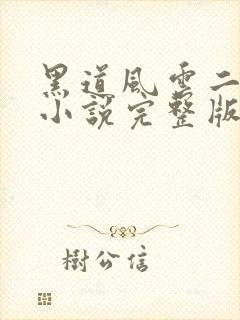 黑道風雲二
小說完整版
樹公信